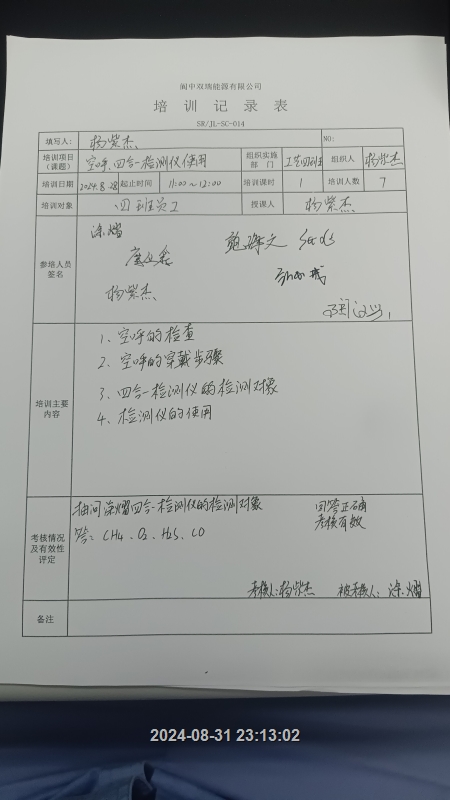 阆中双瑞能源有限公司
培训记录表
SR/JL-SC-014
填写人: 杨紫杰 NO:
培训项目(课题) 空呼、四合一检测仪使用 组织实施部门 工艺四班 组织人 杨紫杰
培训日期 2024.8.28 起止时间 11:00~12:00 培训课时 1 培训人数 7
培训对象 四班员工 授课人 杨紫杰
参培人员签名
涂熠
杨紫杰
培训主要内容
1、空呼的检查
2、空呼的穿戴步骤
3、四合一检测仪的检测对象
4、检测仪的使用
考核情况及有效性评定
抽问涂熠四合一检测仪的检测对象 回答正确
答: CH4、O2、H2S、CO 考核有效
考核人:杨紫杰 被考核人: 涂熠
备注
2024-08-31 23:13:02